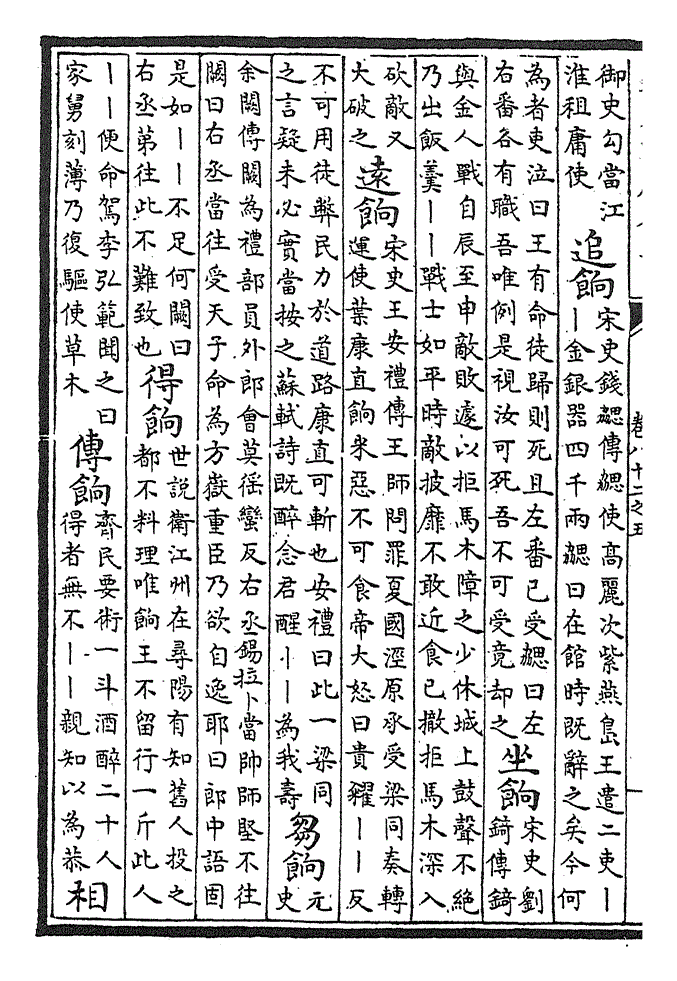 卷八十二之五
御史勾當江
淮租庸使
追餉
宋史錢勰傳勰使高麗次紫燕島王遣二吏丨
丨金銀器四千兩勰曰在館時既辭之矣今何
為者吏泣曰王有命徒歸則死且左番已受勰曰左
右番各有職吾唯例是視汝可死吾不可受竟却之
坐餉
宋史劉
錡傳錡
與金人戰自辰至申敵敗遽以拒馬木障之少休城上鼓聲不絕
乃出飯羹丨丨戰士如平時敵披靡不敢近食已撤拒馬木深入
砍敵又
大破之
遠餉
宋史王安禮傳王師問罪夏國涇原承受梁同奏轉
運使葉康直餉米惡不可食帝大怒曰貴糴丨丨反
不可用徒弊民力於道路康直可斬也安禮曰此一梁同
之言疑未必實當按之蘇軾詩既醉念君醒丨丨為我壽
芻餉
元
史
余闕傳闕為禮部員外郎會莫徭蠻反右丞錫拉卜當帥師堅不往
闕曰右丞當往受天子命為方嶽重臣乃欲自逸耶曰郎中語固
是如丨丨不足何闕曰
右丞第往此不難致也
得餉
世說衛江州在尋陽有知舊人投之
都不料理唯餉王不留行一斤此人
丨丨便命駕李弘範聞之曰
家舅刻薄乃復驅使草木
傳餉
齊民要術一斗酒醉二十人
得者無不丨丨親知以為恭
相